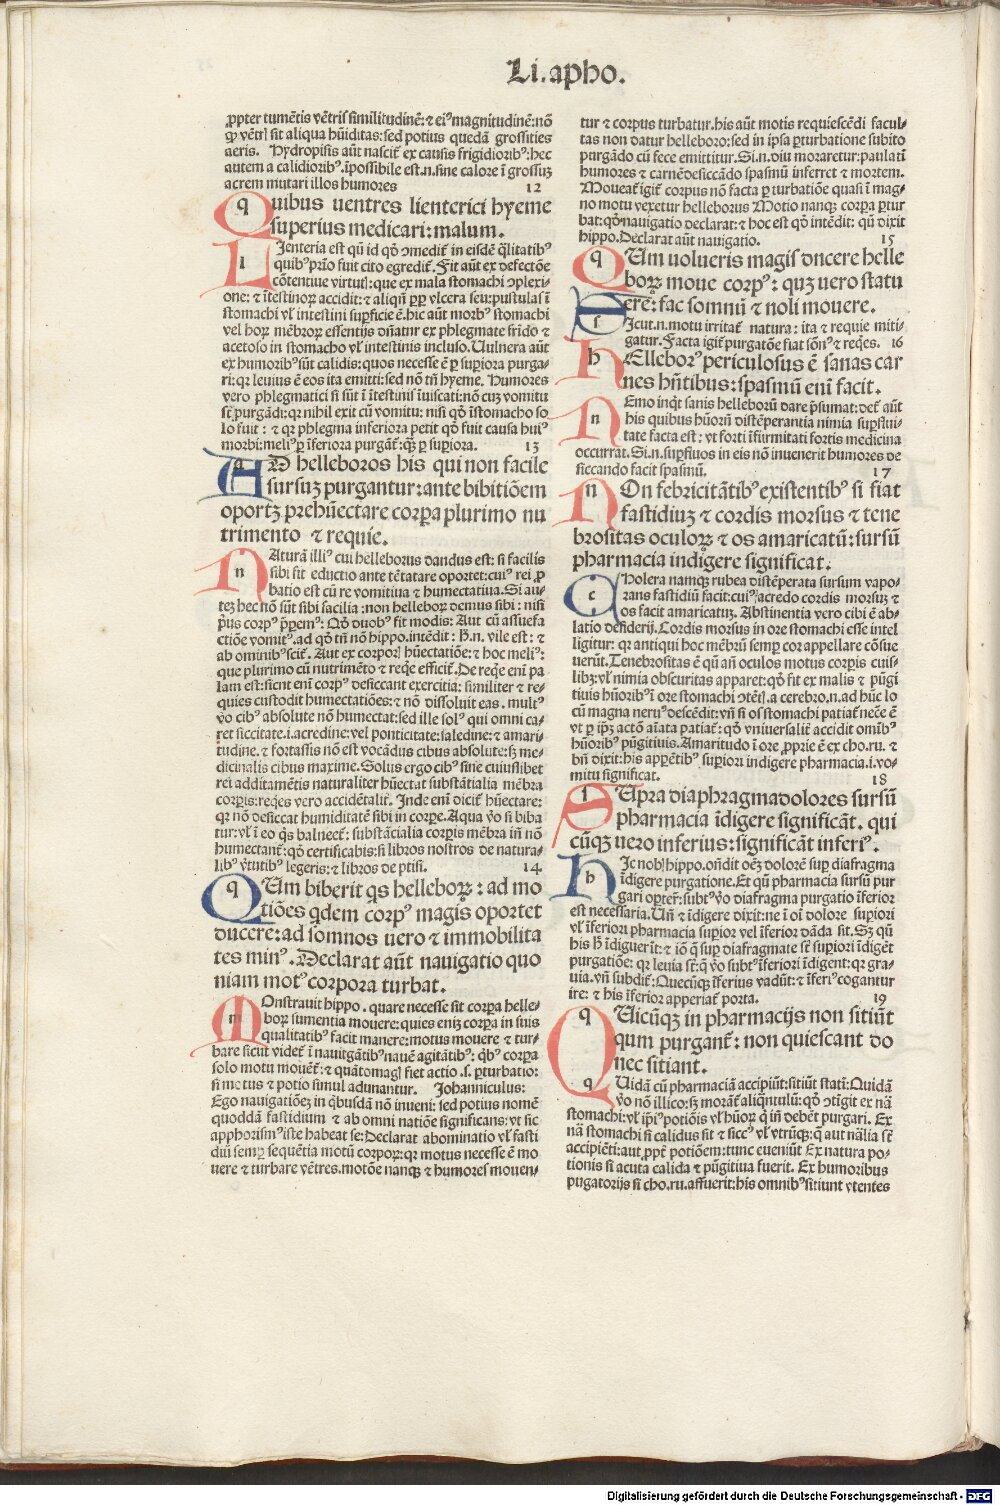 Li.apho.
ꝓpter tumētis vētris similitudinē:⁊ eiꝰ magnitudinē:nō
ꝙ vētri sit aliqua hūiditas:sed potius quedā grossities
aeris. Hydropisis aūt nascit᷑ ex causis frigidioribꝰ:hec
autem a calidioribꝰ.īpossibile est.n.sine calore ī grossuꝫ
acrem mutari illos humores 12
Quibus uentres lienterici hyeme
superius medicari:malum.
LIenteria est qn̄ id qd̓ ꝯmedit᷑ in eisdē q̄litatibꝰ
quibꝰ prīo fuit cito egredit᷑. Fit aūt ex defectōe
cōtentiue virtutis:que ex mala stomachi ꝯplexi-
one:⁊ ītestinoꝝ accidit:⁊ aliqn̄ ꝓpꝑ vlcera seu pustulas ī
stomachi vl̓ intestini suꝑficie ē.hic aūt morbꝰ stomachi
vel hoꝝ mēbroꝝ essentijs dn̄atur ex phlegmate frīdo ⁊
acetoso in stomacho vl̓ intestinis incluso. Vulnera aūt
ex humoribꝰ sūt calidis:quos necesse ē ꝑ suꝑiora purga-
ri:qꝛ leuius ē eos ita emitti:sed nō tn̄ hyeme. Humores
vero phlegmatici si sūt ī ītestinis īuiscati:nō cuꝫ vomitu
st̄ purgādi:qꝛ nihil exit cū vomitu: nisi qd̓ īstomacho so
lo fuit: ⁊ qꝛ phlegma inferiora petit qd̓ fuit causa huiꝰ
morbi:meliꝰ ꝑ īferiora purgat᷑:qꝫ ꝑ suꝑiora. 13
AD helleboros his qui non facile
sursuꝫ purgantur:ante bibitiōem
oportꝫ prehūectare corꝑa plurimo nu
trimento ⁊ requie.
NAturā illiꝰ cui helleborus dandus est: si facilis
sibi sit eductio ante tētatare oportet:cuiꝰ rei ꝓ
batio est cū re vomitiua ⁊ humectatiua. Si au-
teꝫ hec nō sūt sibi facilia:non helleboꝝ demus sibi: nisi
pꝰus corpꝰ pꝑemꝰ: Qd̓ duobꝰ fit modis: Aut cū assuefa
ctiōe vomitꝰ.ad qd̓ tn̄ nō hippo.intēdit: H̄.n. vile est: ⁊
ab omnibꝰ scit᷑. Aut ex corporis hūectatiōe:⁊ hoc meliꝰ:
que plurimo cū nutrimēto ⁊ reqe efficit᷑. De reqe eni pa
lam est:sicut eni corpꝰ desiccant exercitia: similiter ⁊ re-
quies custodit humectatiōes:⁊ nō dissoluit eas. multꝰ
v̓o cibꝰ absolute nō humectat:sed ille solꝰ qui omni ca-
ret siccitate.i.acredine:vel ponticitate:saledine:⁊ amari-
tudine. ⁊ fortassis nō est vocādus cibus absolute:sꝫ me-
dicinalis cibus maxime. Solus ergo cibꝰ sine cuiuslibet
rei additamētis naturaliter hūectat substātialia mēbra
corꝑis:reqes vero accidētalit᷑. Inde eni dicit᷑ hūectare:
qꝛ nō desiccat humiditatē sibi in corꝑe. Aqua v̓o si biba
tur:vl̓ ī eo q̄s balneet᷑: substācialia corꝑis mēbra īn̄ nō
humectant᷑:qd̓ certificabis:si libros nostros de natura-
libꝰ v̓tutibꝰ legeris:⁊ libros de ptisi. 14
QUm biberit qs helleboꝝ: ad mo
tiōes qdem corpꝰ magis oportet
ducere:ad somnos uero ⁊ immobilita
tes minꝰ. Declarat aūt nauigatio quo
niam motꝰ corpora turbat.
MOnstrauit hippo. quare necesse sit corꝑa helle-
boꝝ sumentia mouere:quies eniꝫ corꝑa in suis
qualitatibꝰ facit manere:motus mouere ⁊ tur-
bare sicut videt᷑ ī nauigātibꝰ nauē agitātibꝰ: qbꝰ corꝑa
solo motu mouēt᷑:⁊ quātomagis fiet actio.s. ꝑturbatio:
si motus ⁊ potio simul adunantur. Johanniculus:
Ego nauigatiōeꝫ in qbusdā nō inueni: sed potius nomē
quoddā fastidium ⁊ ab omni natiōe significans:vt sic
apphorismꝰ iste habeat se:Declarat abominatio vl̓ fasti
diū semꝑ sequētia motū corporis:qꝛ motus necesse ē mo
uere ⁊ turbare vētres.motōe nanqꝫ ⁊ humores mouen-
tur ⁊ corpus turbatur.his aūt motis requiescēdi facul-
tas non datur helleboro:sed in ipsa ꝑturbatione subito
purgādo cū fece emittitur. Si.n.diu moraretur:paulati
humores ⁊ carnē desiccādo spasmū inferret ⁊ mortem.
Moueat᷑ igit᷑ corpus nō facta ꝑturbatiōe quasi ī mag-
no motu vexetur helleborus Motio nanqꝫ corꝑa ꝑtur
bat:qd̓ nauigatio declarat:⁊ hoc est qd̓ intēdit: qn̄ dixit
hippo. Declarat aūt nauigatio. 15
QUm uolueris magis ducere helle
boꝝ moue corpꝰ: quꝫ uero statu
ere: fac somnū ⁊ noli mouere.
SIcut.n.motu irritat᷑ natura: ita ⁊ requie miti-
gatur. Facta igit᷑ purgatōe fiat sōnꝰ ⁊ reqes. 16
HElleborꝰ periculosus ē sanas car
nes hn̄tibus:spasmū eni facit.
NEmo inqt sanis helleborū dare p̄sumat:det᷑ aūt
his quibus hūorū distēperantia nimia suꝑflui-
tate facta est: vt forti īfirmitati fortis medicina
occurrat. Si.n.suꝑfluos in eis nō inuenerit humores de
siccando facit spasmū. 17
NOn febricitātibꝰ existentibꝰ si fiat
fastidiuꝫ ⁊ cordis morsus ⁊ tene
brositas oculoꝝ ⁊ os amaricatū:sursū
pharmacia indigere significat.
CHolera namqꝫ rubea distēperata sursum vapo-
rans fastidiū facit:cuiꝰ acredo cordis morsuꝫ ⁊
os facit amaricatuꝫ. Abstinentia vero cibi ē ab-
latio desiderij. Cordis morsus in ore stomachi esse intel
ligitur: qꝛ antiqui hoc mēbrū semꝑ cor appellare cōsue
uerūt. Tenebrositas ē qn̄ an̄ oculos motus corꝑis cuis-
libꝫ:vl̓ nimia obscuritas apparet:qd̓ fit ex malis ⁊ pūgi
tiuis hūoribꝰ ī ore stomachi ꝯtētis.a cerebro.n.ad huc lo
cū magna neruꝰ descēdit:vn̄ si os stomachi patiat᷑ necē ē
vt ꝑ ipꝫ actō aīata patiat᷑: qd̓ vniuersalit᷑ accidit omībꝰ
hūoribꝰ pūgitiuis. Amaritudo ī ore ꝓprie ē ex cho.ru. ⁊
hn̄ dixit:his apꝑētibꝰ suꝑiori indigere pharmacia.i.vo-
mitu significat. 18
SUpra diaphragma dolores sursū
pharmacia īdigere significāt. qui
cūqꝫ uero inferius:significāt inferiꝰ.
HIc nobis hippo.on̄dit oēꝫ dolorē suꝑ diafragma
īdigere purgatione. Et qn̄ pharmacia sursū pur
gari oꝑtet᷑:subtꝰ v̓o diafragma purgatio īferior
est necessaria. Vn̄ ⁊ īdigere dixit:ne ī oī dolore suꝑiori
vl̓ īferiori pharmacia suꝑior vel īferior dāda sit. Sꝫ qn̄
his h̄ īdiguerit:⁊ iō q̄ suꝑ diafragmate st̄ suꝑiori īdigēt
purgatiōe: qꝛ leuia st̄:q̄ v̓o subtꝰ īferiori īdigent:qꝛ gra-
uia.vn̄ subdit᷑:Quecūqꝫ īferius vadūt:⁊ īferiꝰ cogantur
ire: ⁊ his īferior apperiat᷑ porta. 19
QUicūqꝫ in pharmacijs non sitiūt
qum purgant᷑: non quiescant do
nec sitiant.
QUidā cū pharmaciā accipiūt:sitiūt statī:Quidā
v̓o nō illico:sꝫ morāt᷑ aliqn̄tulū:qd̓ ꝯtigit ex nā
stomachi:vl̓ ipiꝰ potiōis vl̓ hūoꝝ q̄ īn̄ debēt purgari. Ex
nā stomachi si calidus sit ⁊ siccꝰ vl̓ vtrūqꝫ:q̄ aut nālia st̄
accipiēti:aut ꝓpt̓ potiōem:tunc eueniūt Ex natura po-
tionis si acuta calida ⁊ pūgitiua fuerit. Ex humoribus
pugatorijs si cho.ru.affuerit:his omnibꝰ sitiunt vtentes
Digitalisierung gefördert durch die Deutsche Forschungsgemeinschaft - DFG